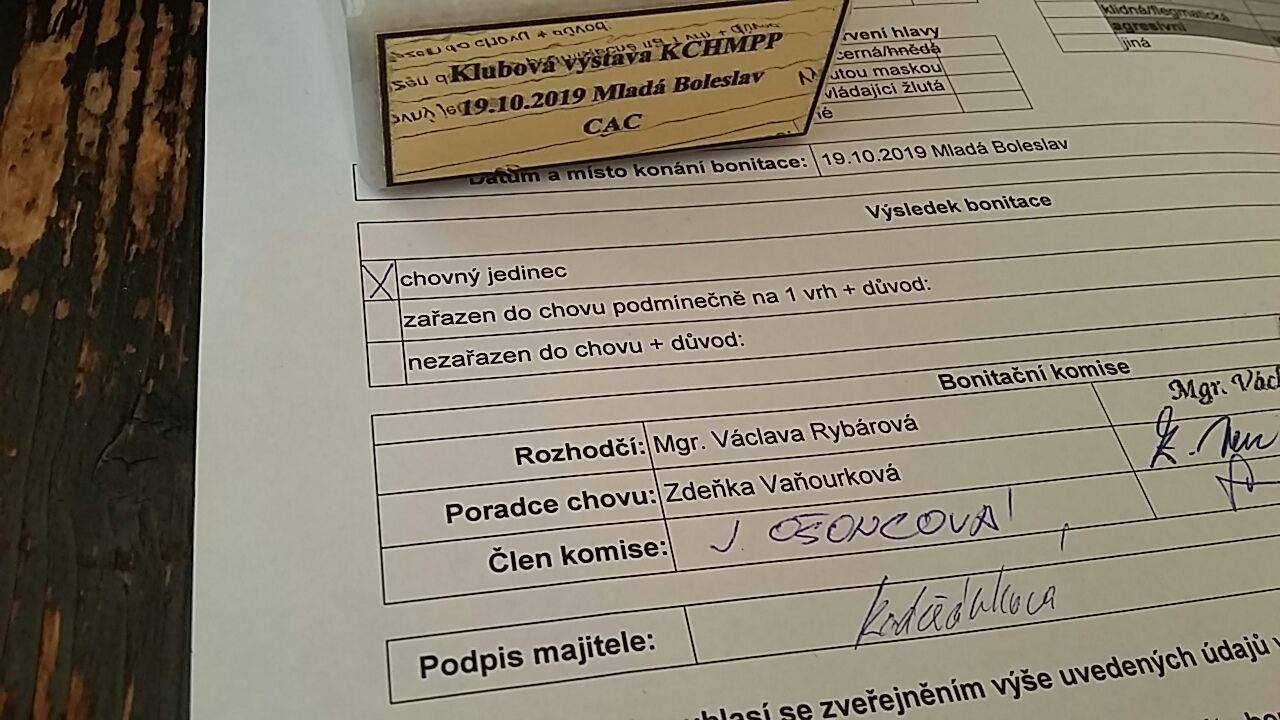 Klubová výstava KCHMPP
19.10.2019 Mladá Boleslav
CAC
klidná/flegmatická
agresivní
jiná
rvení hlavy
černá/hnědá
utou maskou
vládající žlutá
né
Datum a místo konání bonitace: 19.10.2019 Mladá Boleslav
Výsledek bonitace
X chovný jedinec
zařazen do chovu podmínečně na 1 vrh + důvod:
nezařazen do chovu + důvod:
Bonitační komise
Mgr. Václ
Rozhodčí: Mgr. Václava Rybárová
Poradce chovu: Zdeňka Vaňourková
Člen komise: J. OŠONCOVÁ
Podpis majitele:
hlasí se zveřejněním výše uvedených údajů v